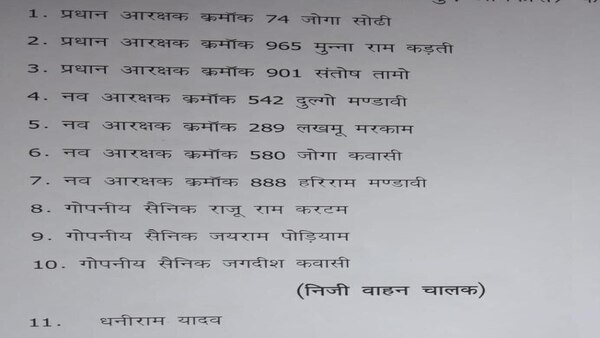 1. प्रधान आरक्षक क्रमॉक 74 जोगा सोढी
2. प्रधान आरक्षक क्रमॉक 965 मुन्ना राम कड़ती
3. प्रधान आरक्षक क्रमॉक 901 संतोष तामो
4. नव आरक्षक क्रमॉक 542 दुल्गो मण्डावी
5. नव आरक्षक क्रमॉक 289 लखमू मरकाम
6. नव आरक्षक क्रमॉक 580 जोगा कवासी
7. नव आरक्षक क्रमॉक 888 हरिराम मण्डावी
8. गोपनीय सैनिक राजू राम करटम
9. गोपनीय सैनिक जयराम पोड़ियाम
10. गोपनीय सैनिक जगदीश कवासी
(निजी वाहन चालक)
11. धनीराम यादव